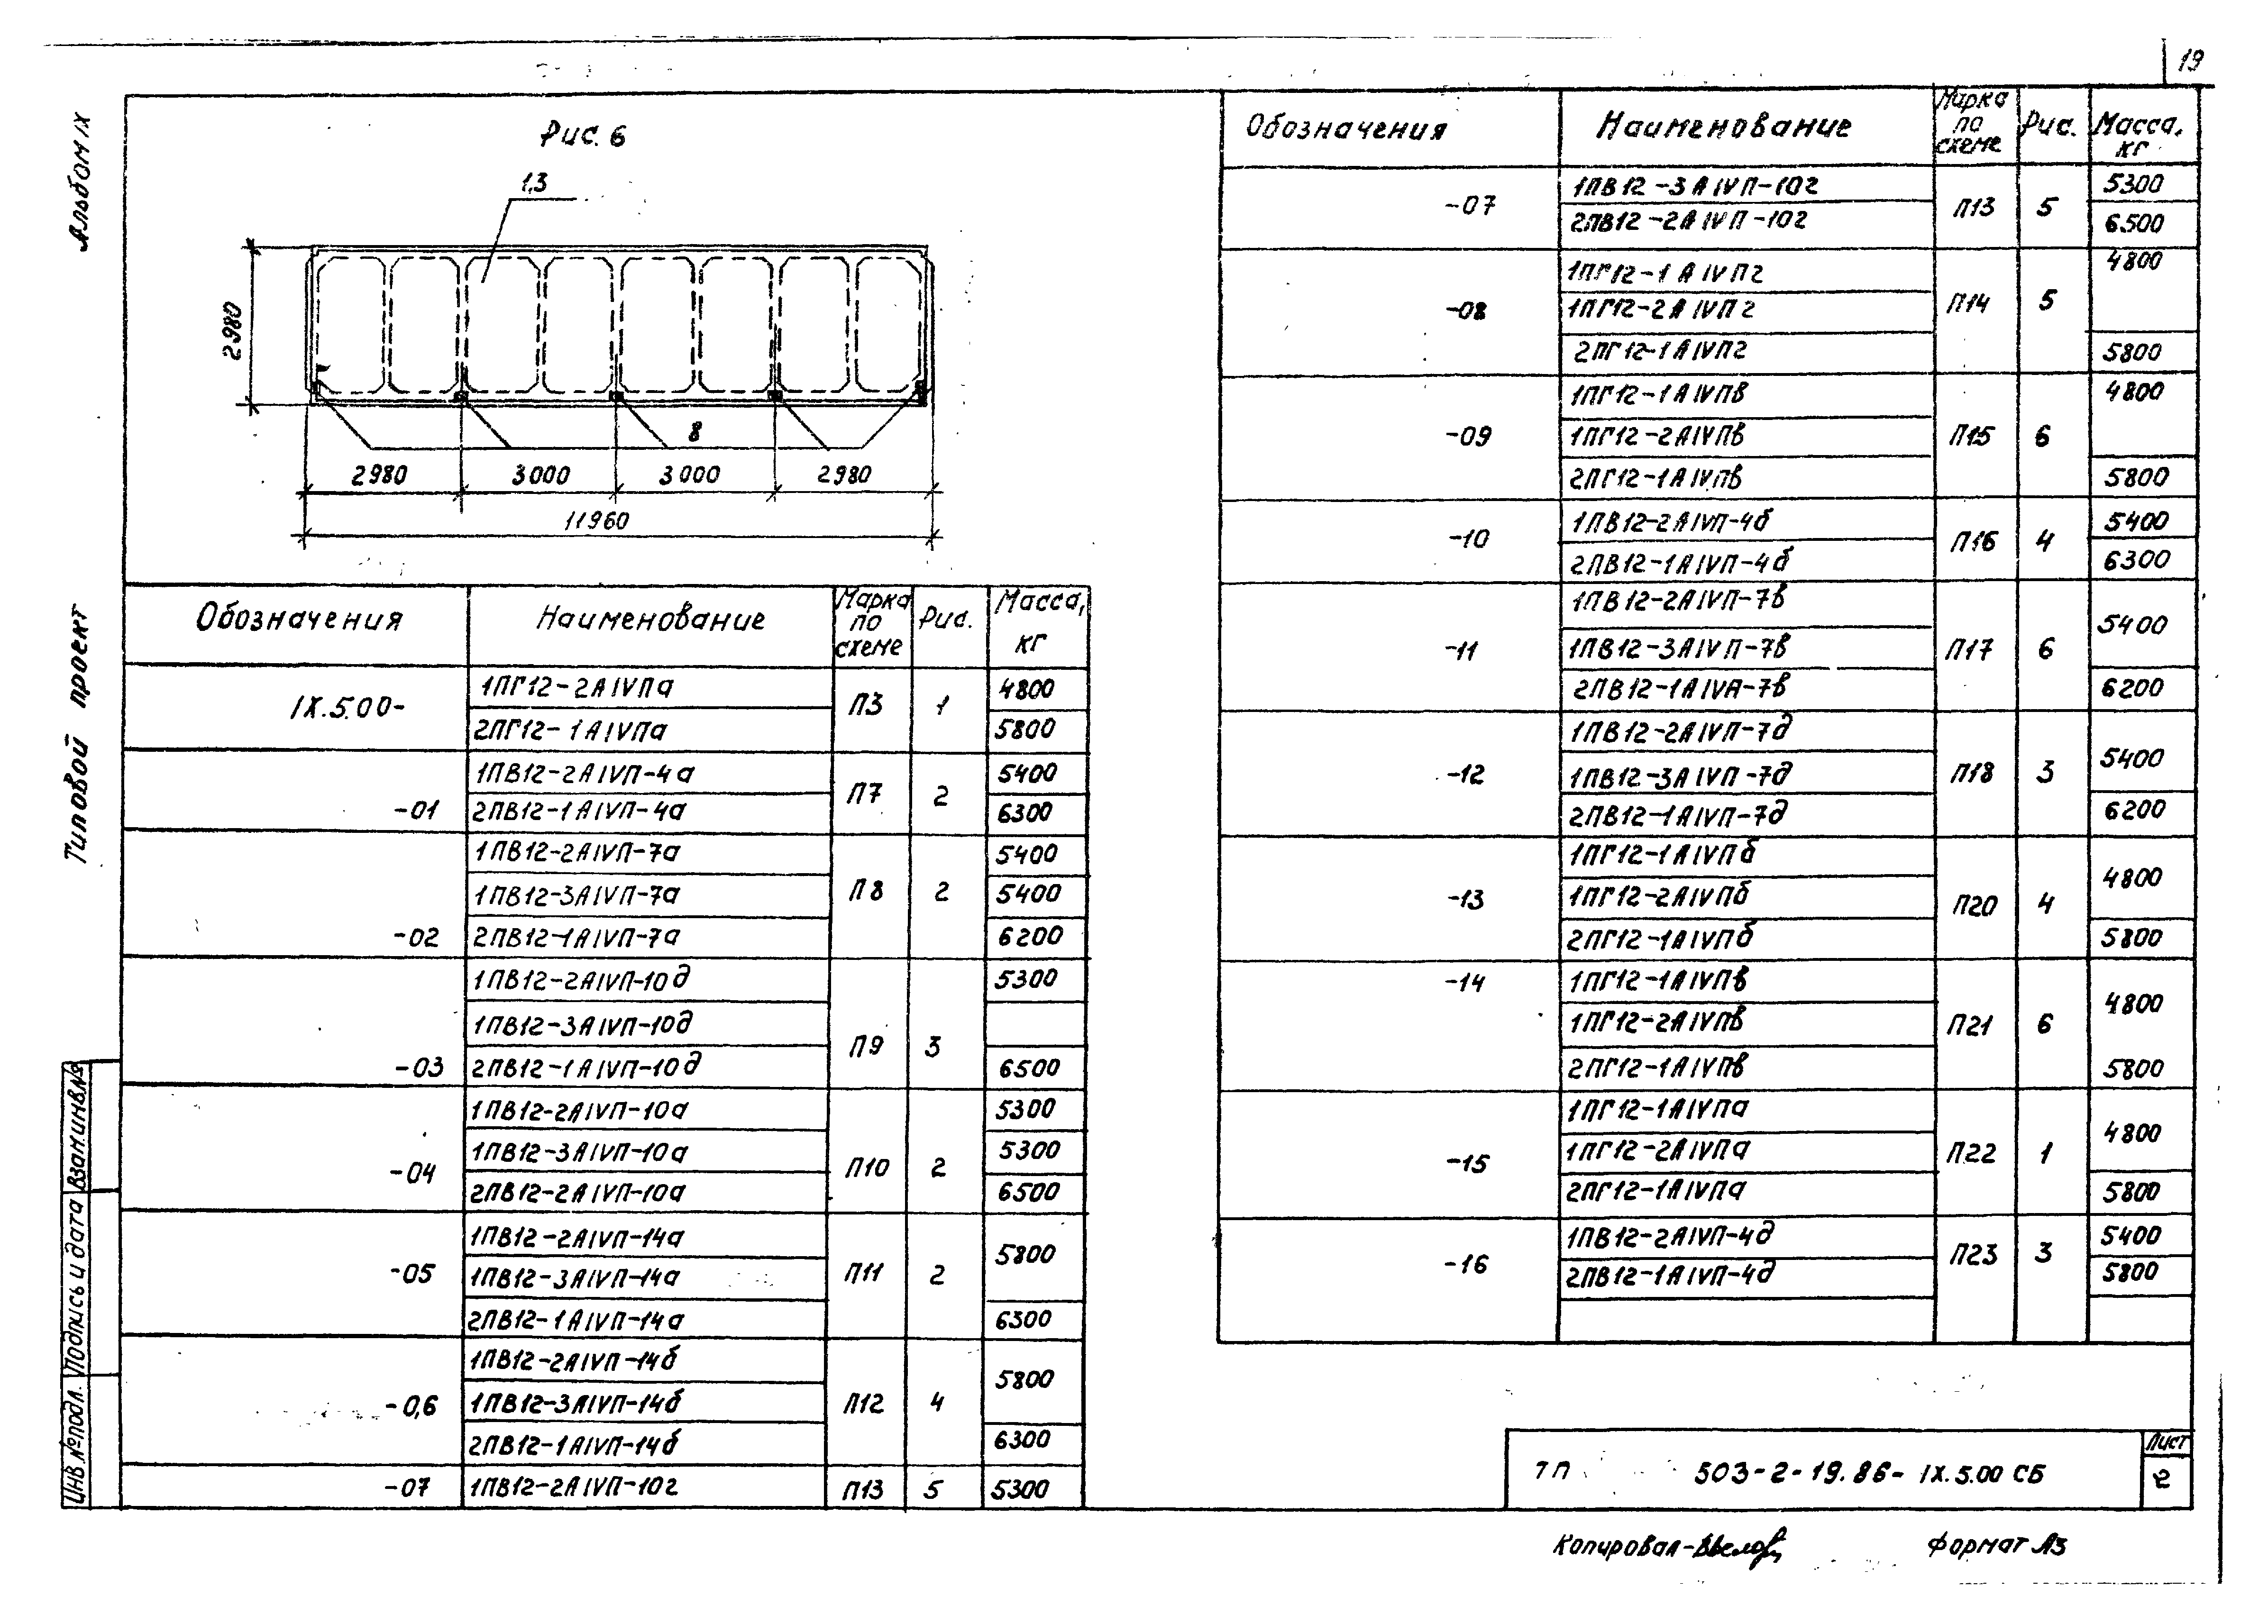 19
Альбом IX
Типовой проект
Рис. 6
1,3
2980
8
2980 3000 3000 2980
11960
Обозначения Наименование Марка по схеме Рис. Масса, кг
IX.5.00- 1ПГ12-2АIVПа П3 1 4800
2ПГ12-1АIVПа 5800
1ПВ12-2АIVП-4а П7 2 5400
-01 2ПВ12-1АIVП-4а 6300
1ПВ12-2АIVП-7а 5400
1ПВ12-3АIVП-7а П8 2 5400
-02 2ПВ12-1АIVП-7а 6200
1ПВ12-2АIVП-10д 5300
1ПВ12-3АIVП-10д П9 3
-03 2ПВ12-1АIVП-10д 6500
1ПВ12-2АIVП-10а 5300
1ПВ12-3АIVП-10а 5300
-04 2ПВ12-2АIVП-10а П10 2 6500
1ПВ12-2АIVП-14а 5800
-05 1ПВ12-3АIVП-14а П11 2
2ПВ12-1АIVП-14а 6300
1ПВ12-2АIVП-14б 5800
-0,6 1ПВ12-3АIVП-14б П12 4
2ПВ12-1АIVП-14б 6300
-07 1ПВ12-2АIVП-10г П13 5 5300
Обозначения Наименование Марка по схеме Рис. Масса, кг
1ПВ12-3АIVП-10г 5300
-07 2ПВ12-2АIVП-10г П13 5 6500
1ПГ12-1АIVПг 4800
-08 1ПГ12-2АIVПг П14 5
2ПГ12-1АIVПг 5800
1ПГ12-1АIVПв 4800
-09 1ПГ12-2АIVПв П15 6
2ПГ12-1АIVПв 5800
1ПВ12-2АIVП-4б 5400
-10 2ПВ12-1АIVП-4б П16 4 6300
1ПВ12-2АIVП-7в 5400
-11 1ПВ12-3АIVП-7в П17 6
2ПВ12-1АIVП-7в 6200
1ПВ12-2АIVП-7д 5400
-12 1ПВ12-3АIVП-7д П18 3
2ПВ12-1АIVП-7д 6200
1ПГ12-1АIVПб 4800
-13 1ПГ12-2АIVПб П20 4
2ПГ12-1АIVПб 5800
-14 1ПГ12-1АIVПв 4800
1ПГ12-2АIVПв П21 6
2ПГ12-1АIVПв 5800
1ПГ12-1АIVПа 4800
-15 1ПГ12-2АIVПа П22 1
2ПГ12-1АIVПа 5800
1ПВ12-2АIVП-4д 5400
-16 2ПВ12-1АIVП-4д П23 3 5800
Инв.№подл. Подпись и дата Взам.инв.№
ТП 503-2-19.86- IX.5.00 СБ
Лист
2
Копировал- Формат А3